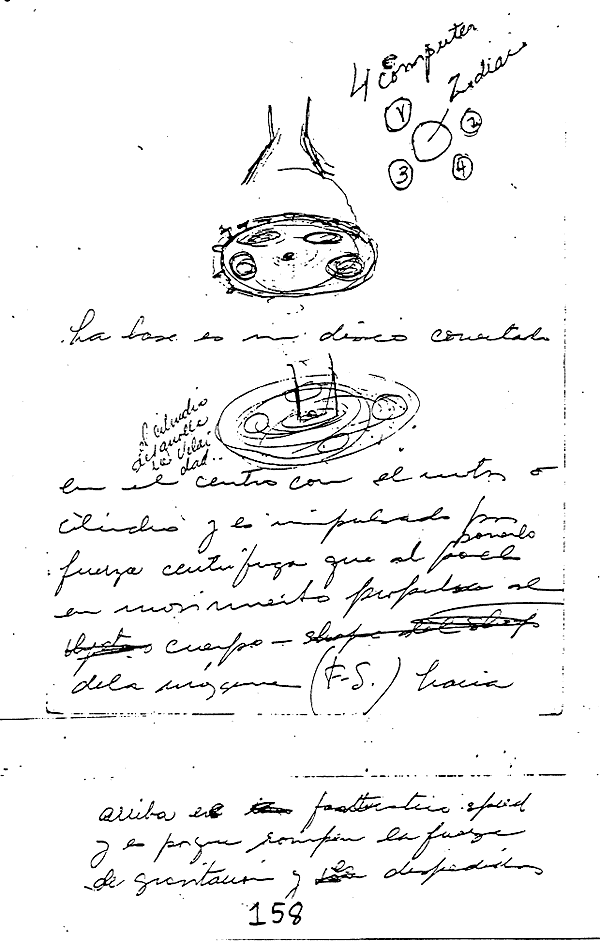 4 Computer
Zodiac
1
2
3
4
La base es un disco conectado
El cilindro
desarrolla
la veloci
dad..
en el centro con el motor o
cilindro y es impulsado por
fuerza centrífuga que al ponerlo
en movimiento propulsa al
cuerpo -
de la (F-S.) hacia
arriba en fantastico speed
y es porque rompen la fuerza
de gravitación y despedidos
158